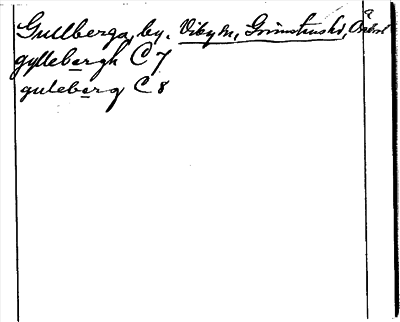 Gullberga, by. Viby sn, Grimstens hd, Örebro l
gyllebergh C 7
guleberg C 8